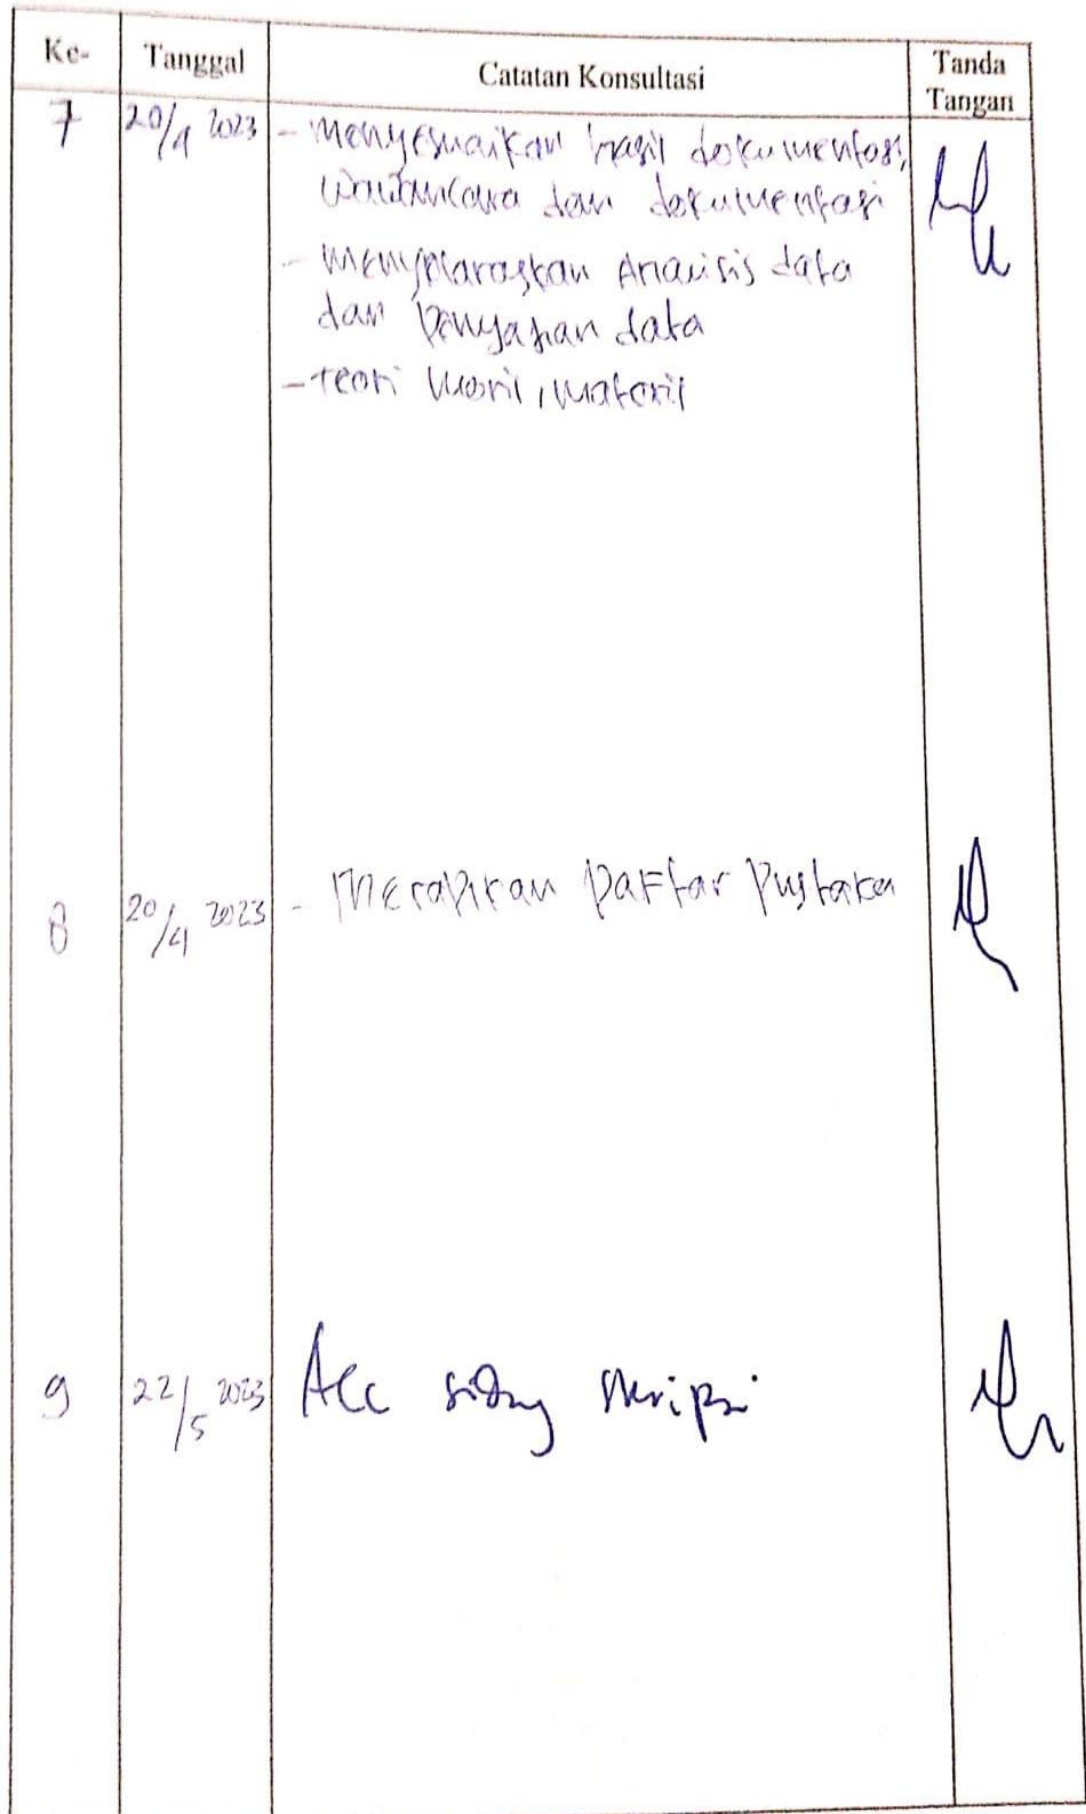 Ke- Tanggal Catatan Konsultasi Tanda Tangan
7 20/4 2023 - menyesuaikan hasil dokumentasi,
wawancara dan dokumentasi
- menyelaraskan Analisis data
dan Penyajian data
- teori moril, materil
8 20/4 2023 - Merapikan Daftar Pustaka
9 22/5 2023 Acc sidang skripsi